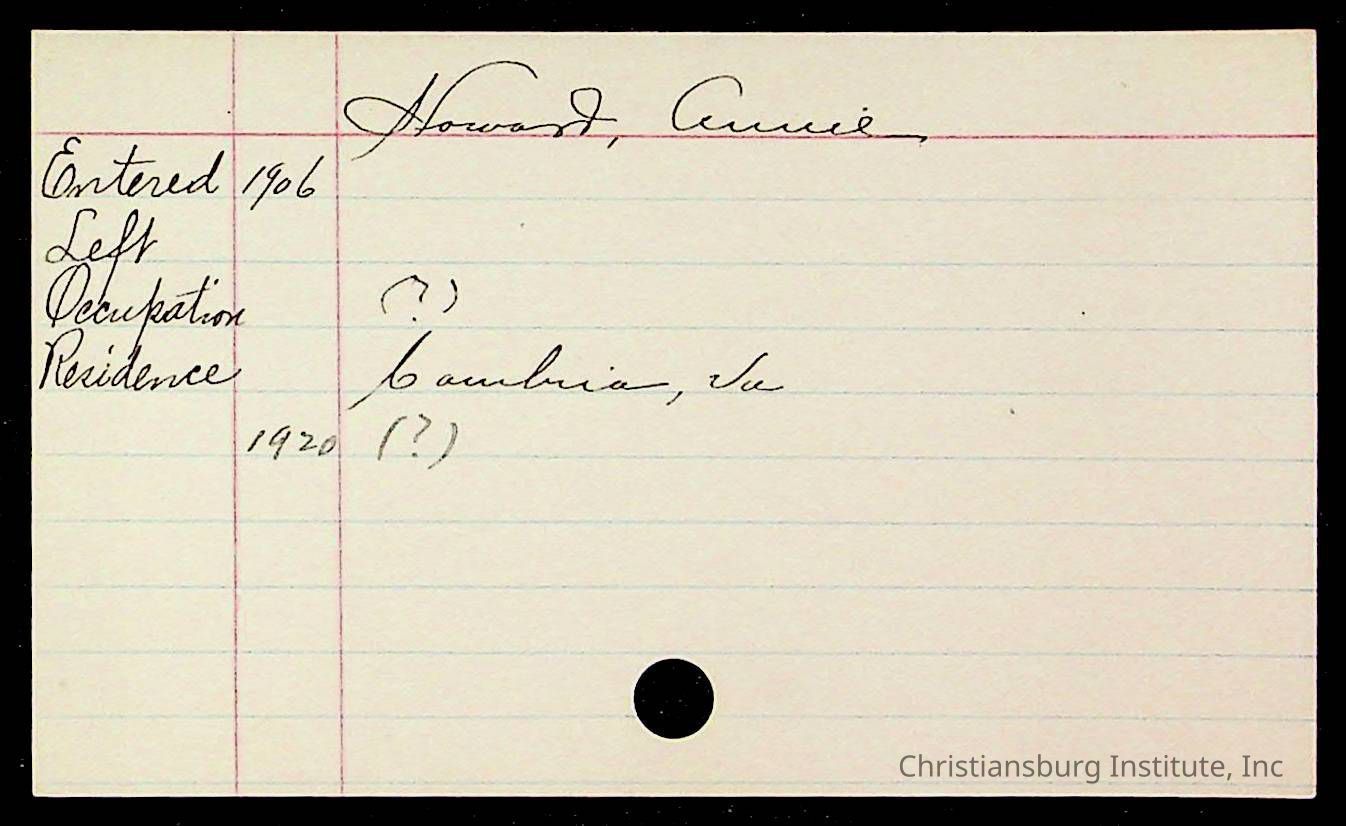 Howard, Annie
Entered 1906
Left
Occupation (?)
Residence Cambria, Va
1920 (?)
Christiansburg Institute, Inc